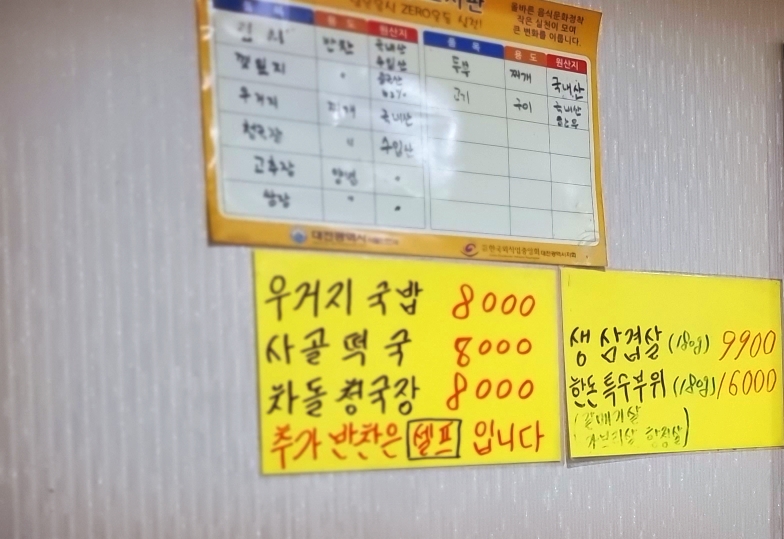 ZERO운동 실천!
올바른 음식문화정착
작은 실천이 모여
큰 변화를 이룹니다.
품 목 용 도 원산지 품 목 용 도 원산지
반찬 국내산 두부 찌개 국내산
깻잎지 〃 중국산 고기 구이 국내산
우거지 찌개 국내산
청국장 〃 수입산
고추장 양념 〃
쌈장 〃 〃
대전광역시
한국외식업중앙회 대전광역시지회
우거지 국밥 8000
사골 떡 국 8000
차돌 청국장 8000
추가 반찬은 셀프 입니다
생 삼겹살 (180g) 9900
한돈 특수부위 (180g) 16000
(갈매기살
가브리살 항정살)